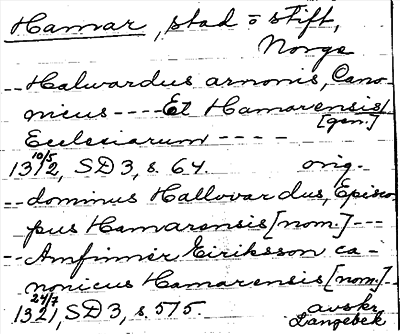 Hamar, stad o stift,
Norge
-- Halwardus arnonis, Cano-
nicus ---- Et Hamarensis/
[gen.]
Ecclesiarum ----
13 10/5 12, SD 3, s. 64. orig.
-- dominus Hallovardus, Episco
pus Hamarensis [nom.] ---
-- Amfinner Eiriksson ca-
nonicus Hamarensis [nom.]
24/7
1321, SD 3, s. 575. avskr.
Langebek